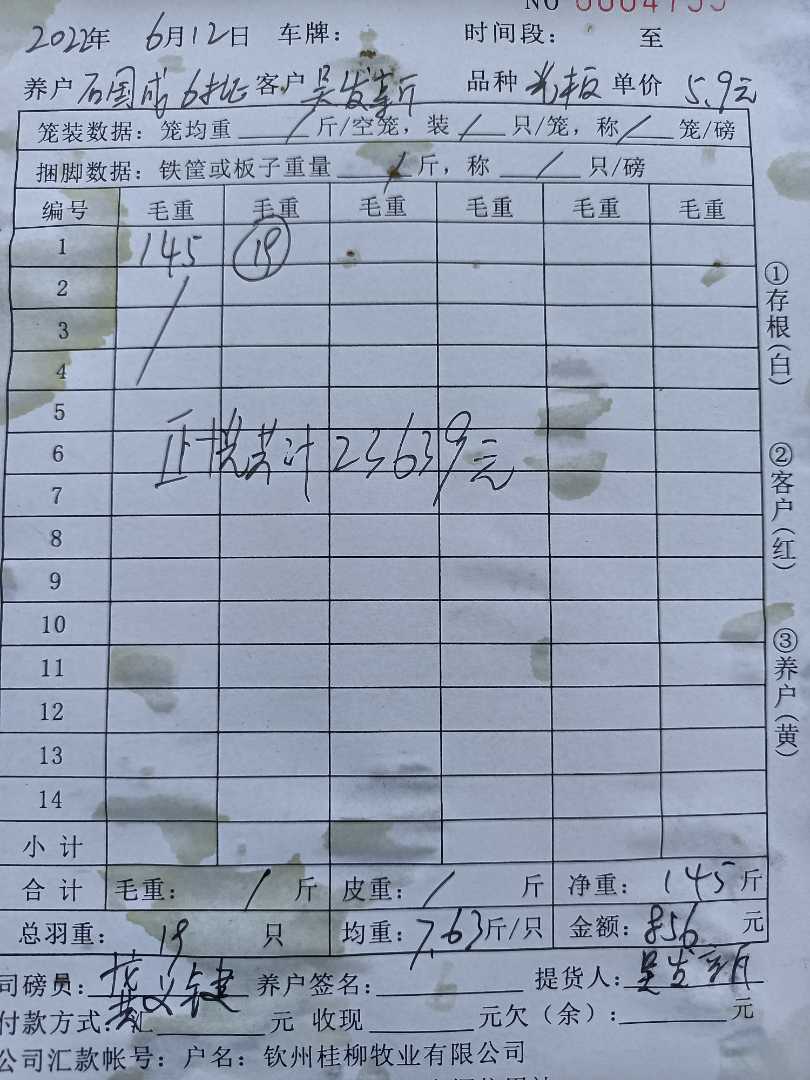 NO 0004755
2022年 6月12日 车牌: 时间段: 至
养户 石国成 6批 客户 吴发 品种 光板 单价 5.9元
笼装数据: 笼均重 / 斤/空笼, 装 / 只/笼, 称 / 笼/磅
捆脚数据: 铁筐或板子重量 / 斤, 称 / 只/磅
编号 毛重 毛重 毛重 毛重 毛重 毛重
1 145 19
2
3
4
5
6 正批共计23639元
7
8
9
10
11
12
13
14
小计
合计 毛重: / 斤 皮重: / 斤 净重: 145斤
总羽重: 19 只 均重: 7.63斤/只 金额: 856 元
司磅员: 养户签名: 提货人: 吴发
付款方式: 汇 元 收现 元欠(余): 元
公司汇款帐号: 户名: 钦州桂柳牧业有限公司
①存根(白)
②客户(红)
③养户(黄)